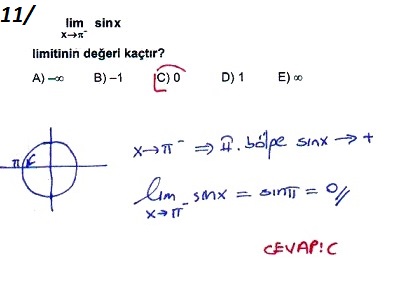 11/
lim sinx
x→π⁻
limitinin değeri kaçtır?
A) –∞ B) –1 C) 0 D) 1 E) ∞
π
x→π⁻ ⇒ II. bölge sinx → +
lim sinx = sinπ = 0//
x→π⁻
CEVAP: C